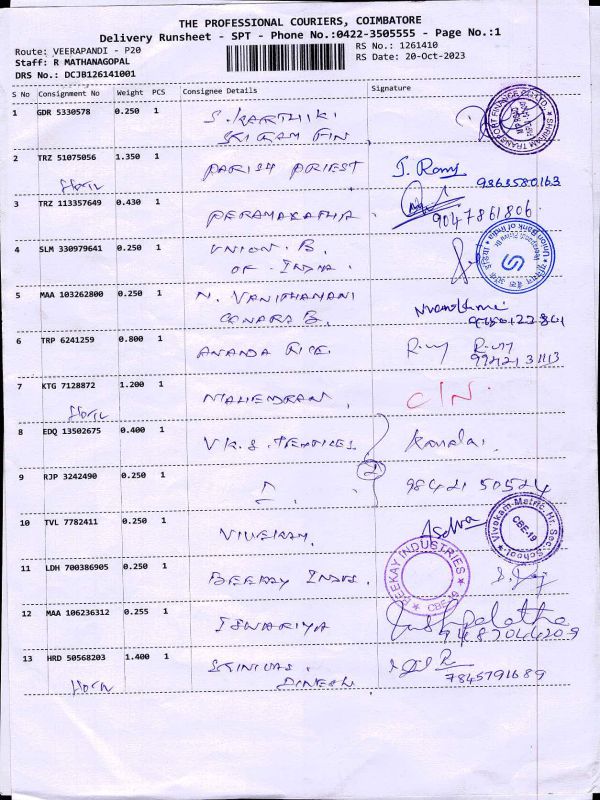 THE PROFESSIONAL COURIERS, COIMBATORE
Delivery Runsheet - SPT - Phone No.:0422-3505555 - Page No.:1
Route: VEERAPANDI - P20
RS No.: 1261410
Staff: R MATHANAGOPAL
RS Date: 20-Oct-2023
DRS No.: DCJB126141001
S No Consignment No Weight PCS Consignee Details Signature
1 GDR 5330578 0.250 1 S. KARTHIK
SRI RAM FIN
SHRIRAM TRANSPORT FINANCE CO LTD.
2 TRZ 51075056 1.350 1 PARISH PRIEST J. Romy
9363580163
3 TRZ 113357649 0.430 1 9047861806
4 SLM 330979641 0.250 1 UNION. B.
OF. INDIA.
Union Bank of India
5 MAA 103262800 0.250 1 N. VANITHAMANI
CANARA B.
6 TRP 6241259 0.800 1 ANANDA RICE.
7 KTG 7128872 1.200 1 MAHENDRAN, C/N.
8 EDQ 13502675 0.400 1 VK.S. TEXTILES
2
9 RJP 3242490 0.250 1 98421 50524
10 TVL 7782411 0.250 1 VIVEKAM.
Vivekam Matric. Hr. Sec. School. CBE-19
11 LDH 700386905 0.250 1 BEEKAY INDUS.
BEEKAY INDUSTRIES CBE-19
12 MAA 106236312 0.255 1 ISWARIYA Pushpalatha
9487044209
13 HRD 50568203 1.400 1 SRINIVAS.
DINESH 7845791689